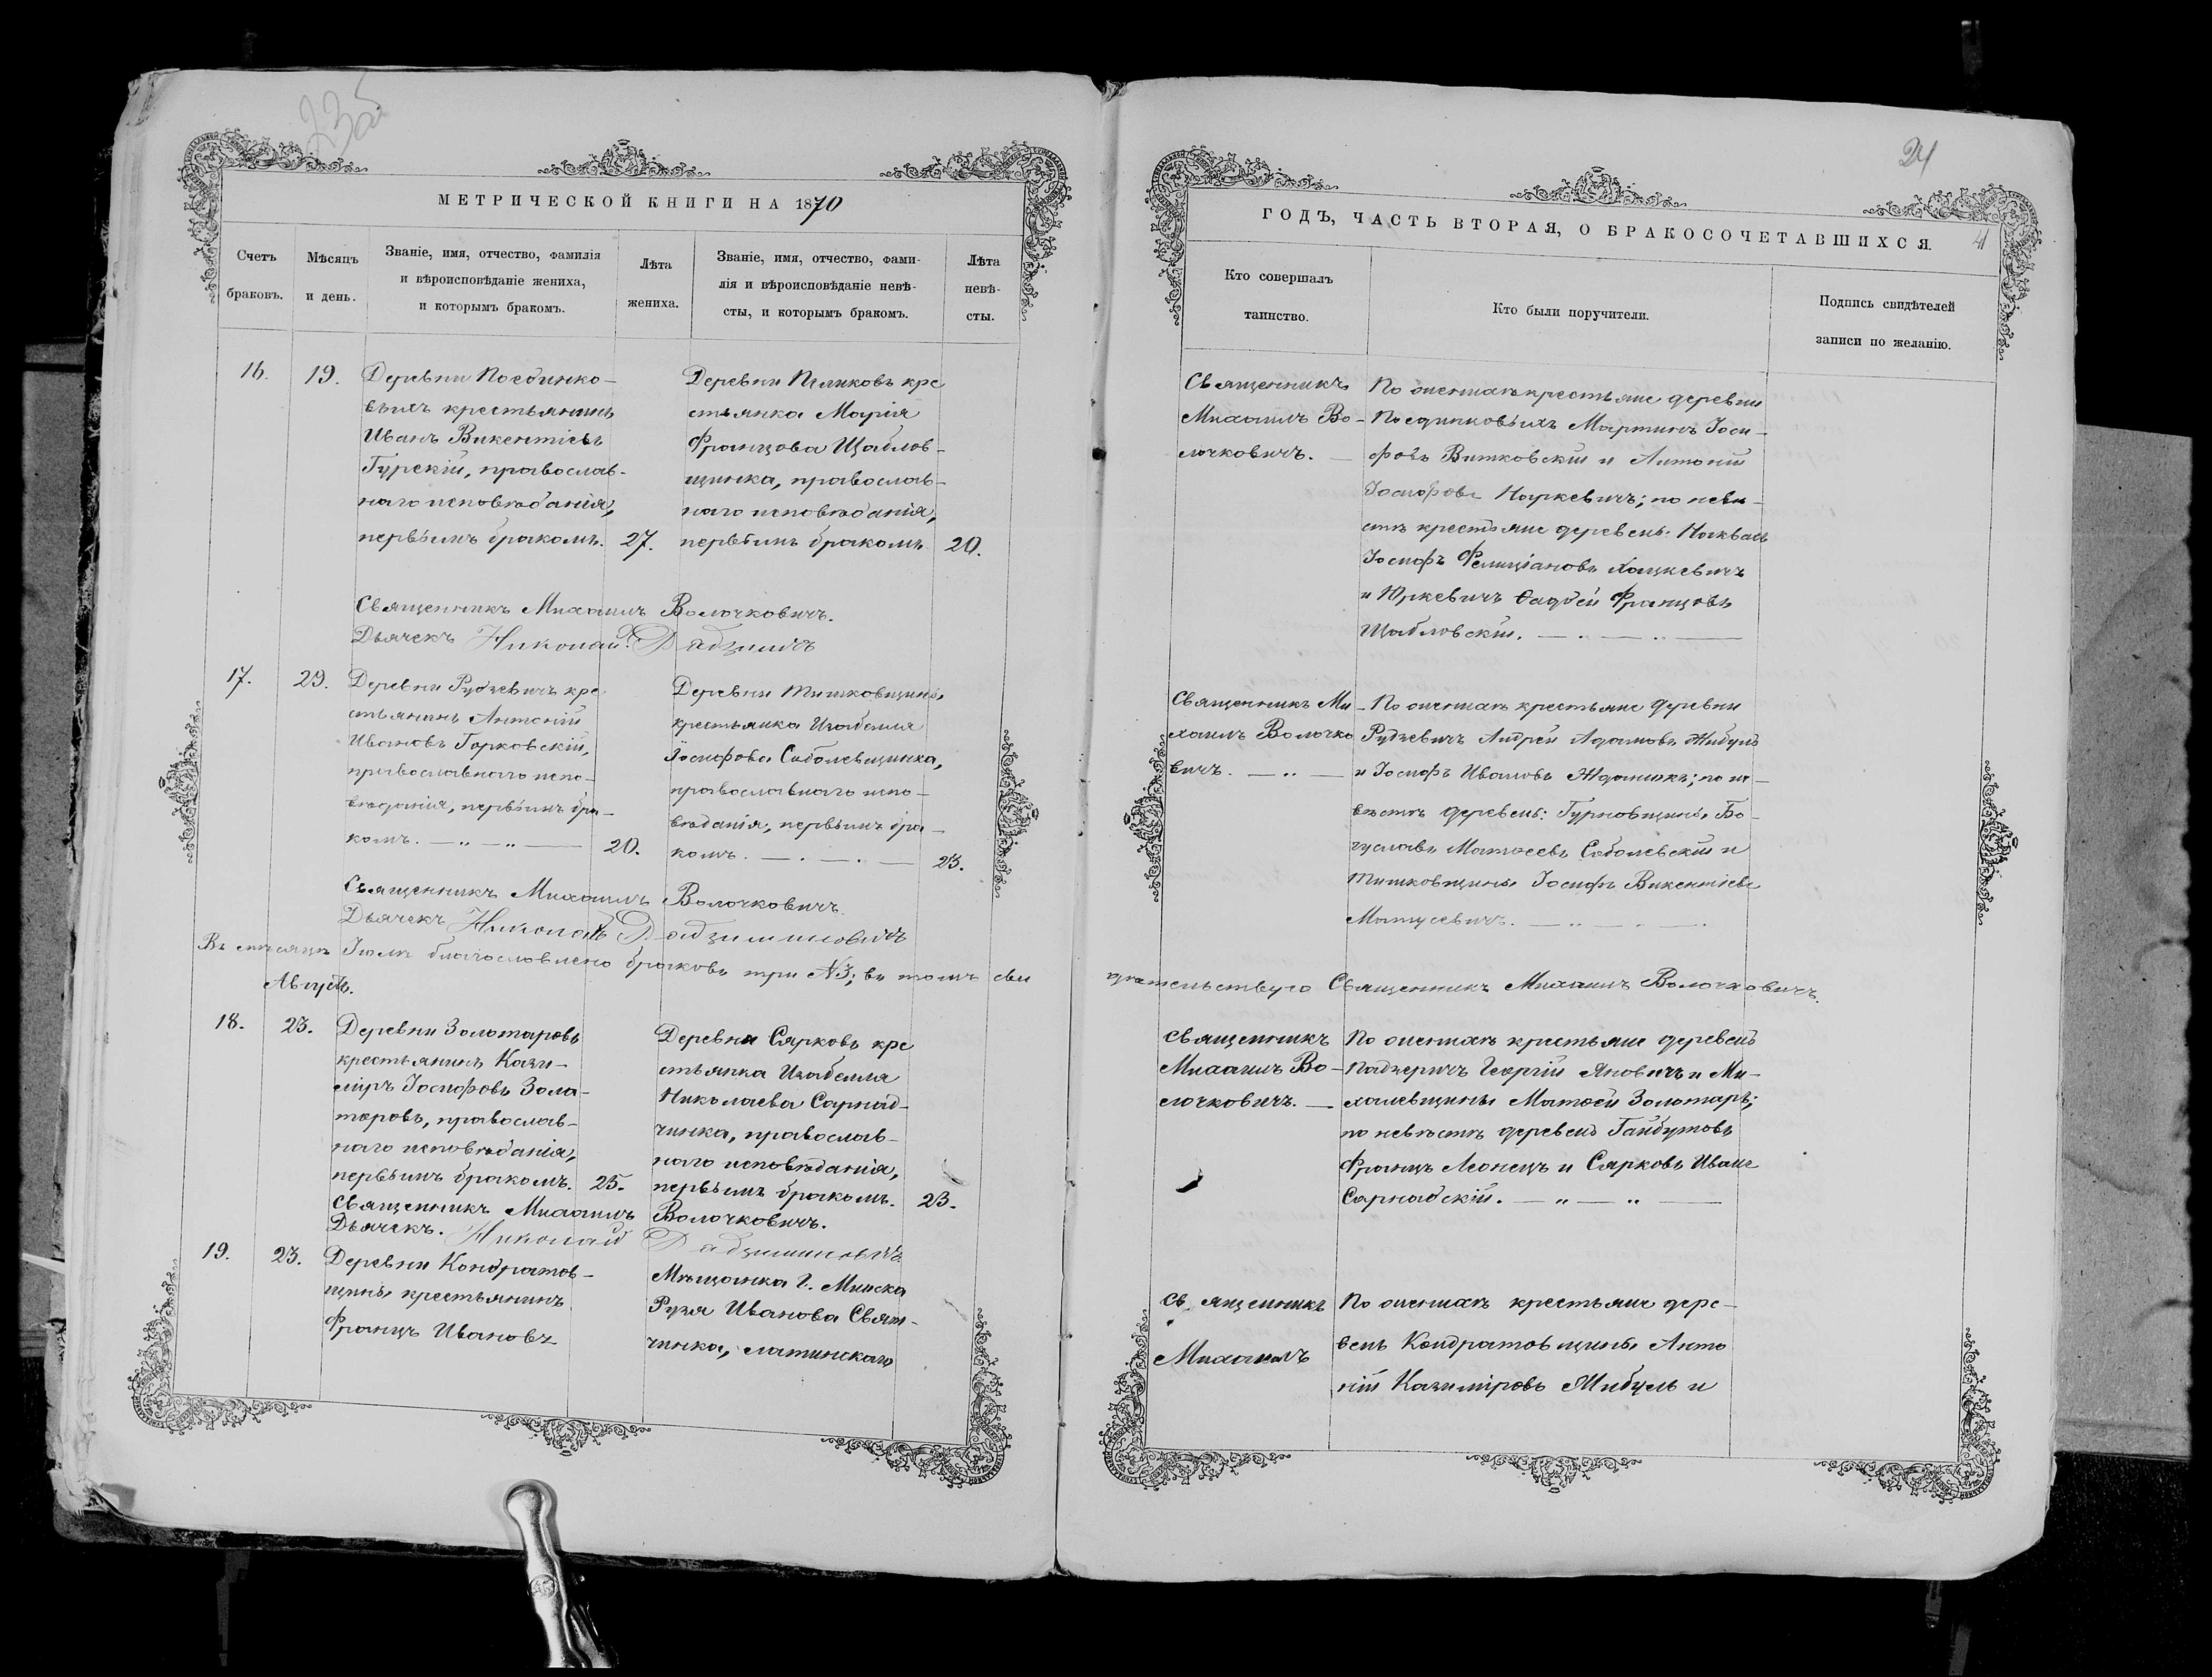 23об
МЕТРИЧЕСКОЙ КНИГИ НА 1870
Счетъ
браковъ.
Мѣсяцъ
и день.
Званіе, имя, отчество, фамилія
и вѣроисповѣданіе жениха,
и которымъ бракомъ.
Лѣта
жениха.
Званіе, имя, отчество, фами-
лія и вѣроисповѣданіе невѣ-
сты, и которымъ бракомъ.
Лѣта
невѣ-
сты.
16.
19.
Деревни Поединко-
выхъ крестьянинъ
Иванъ Викентіевъ
Гурскій, православ-
наго исповѣданія,
первымъ бракомъ.
27.
Деревни Пяликовъ кре
стьянка Марія
Францова Щаблов-
щинка, православ-
наго исповѣданія,
первымъ бракомъ
20.
Священникъ Михаилъ Волочковичъ.
Дьячекъ Николай
17.
29.
Деревни Рудзевичъ кре
стьянинъ Антоній
Ивановъ Горковскій,
православнаго испо-
вѣданія, первымъ бра-
комъ. — „ — „ —
20.
Деревни Тишковщины,
крестьянка Изабелла
Іосифова Соболевщинка,
православнаго испо-
вѣданія, первымъ бра-
комъ. — . — . —
23.
Священникъ Михаилъ Волочковичъ.
Дьячекъ Николай
Въ мѣсяцѣ Іюлѣ благословлено браковъ три №3; въ томъ сви
Августъ.
18.
23.
Деревни Золотаровъ
крестьянинъ Кази-
міръ Іосифовъ Зола-
таровъ, православ-
наго исповѣданія,
первымъ бракомъ.
25.
Деревни Сярковъ кре
стьянка Изабелла
Николаева Сарнад-
чинка, православ-
наго исповѣданія,
первымъ бракомъ.
23.
Священникъ Михаилъ Волочковичъ.
Дьячекъ. Николай
19.
23.
Деревни Кондратов-
щины крестьянинъ
Францъ Ивановъ
Мѣщанка г. Минска
Рузя Иванова Свят-
чинка, латинскаго
24
ГОДЪ, ЧАСТЬ ВТОРАЯ, О БРАКОСОЧЕТАВШИХСЯ.
Кто совершалъ
таинство.
Кто были поручители.
Подпись свидѣтелей
записи по желанію.
Священникъ
Михаилъ Во-
лочковичъ. —
По женихѣ крестьяне деревни
Поединковыхъ Мартинъ Іоси-
фовъ Витковскій и Антоній
Іосифовъ Наркевичъ; по невѣ-
стѣ крестьяне деревень:
Іосифъ Фелиціановъ Хацкевичъ
и Юркевичъ Ѳадей Францовъ
Щабловскій. — . — „ —
Священникъ Ми-
хаилъ Волочко
вичъ. — „ —
По женихѣ крестьяне деревни
Рудзевичъ Андрей Адамовъ Жибуль
и Іосифъ Ивановъ Жданюкъ; по не-
вѣстѣ деревень: Гурновщины, Бо-
гуславъ Матѳеевъ Соболевскій и
Тишковщины Іосифъ Викентіевъ
Матусевичъ. — „ — . — .
дѣтельствую Священникъ Михаилъ Волочковичъ.
Священникъ
Михаилъ Во-
лочковичъ. —
По женихѣ крестьяне деревень
Падзеричъ Георгій Яновичъ и Ми-
халевщины Матѳей Золотаръ;
по невѣстѣ деревень Гайбутовъ
Францъ Леонецъ и Сярковъ Иванъ
Сарнадскій. — „ — „ —
Священникъ
Михаилъ
По женихѣ крестьяне дере-
вень Кондратовщины Анто
ній Казиміровъ Мибуль и